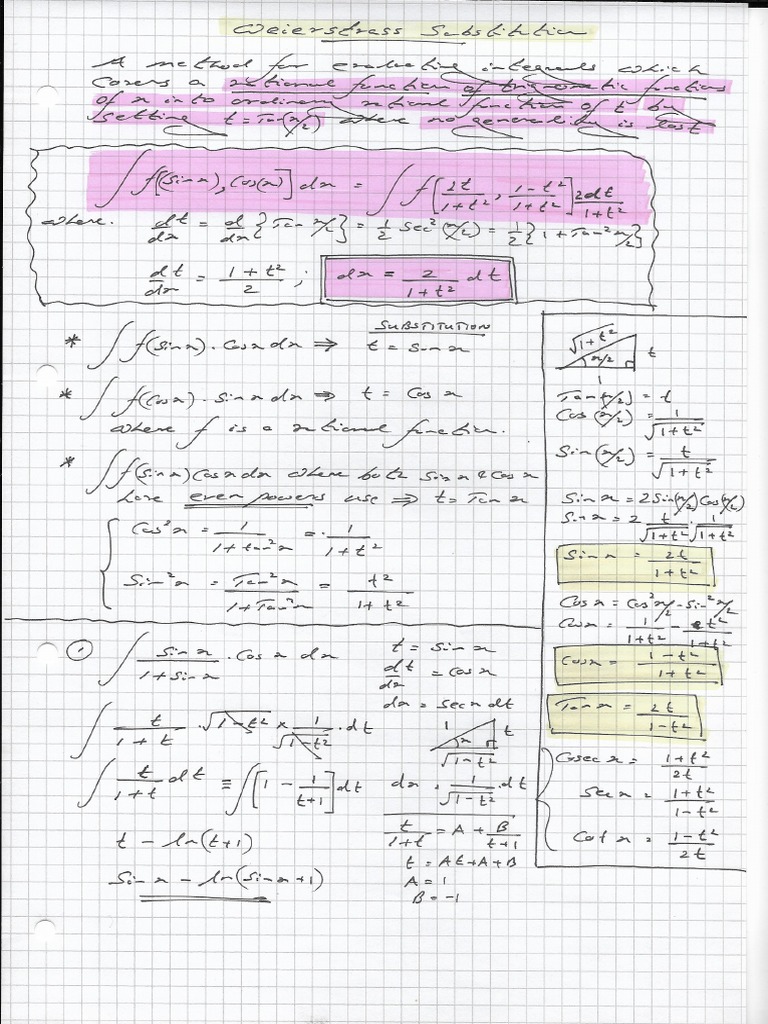 Weierstrass Substitution
A method for evaluating integrals which
covers a rational function of trigonometric functions
of x into ordinary rational function of t by
setting t = Tan(x/2) where no generality is lost
∫ f[Sin(x), Cos(x)] dx = ∫ f[2t/(1+t²), (1-t²)/(1+t²)] 2dt/(1+t²)
where. dt/dx = d/dx {Tan x/2} = 1/2 Sec²(x/2) = 1/2 {1 + Tan² x/2}
dt/dx = (1+t²)/2 ; dx = 2/(1+t²) dt
SUBSTITUTION
* ∫ f(Sin x) . Cos x dx ⇒ t = Sin x
* ∫ f(Cos x) . Sin x dx ⇒ t = Cos x
where f is a rational function.
* ∫ f(Sin x) Cos x dx where both Sin x & Cos x
have even powers use ⇒ t = Tan x
Cos² x = 1/(1+tan² x) = 1/(1+t²)
Sin² x = Tan² x/(1+Tan² x) = t²/(1+t²)
√(1+t²) t
x/2
1
Tan(x/2) = t
Cos(x/2) = 1/√(1+t²)
Sin(x/2) = t/√(1+t²)
Sin x = 2 Sin(x/2) Cos(x/2)
Sin x = 2 t/√(1+t²) . 1/√(1+t²)
Sin x = 2t/(1+t²)
Cos x = Cos² x/2 - Sin² x/2
Cos x = 1/(1+t²) - t²/(1+t²)
Cos x = (1-t²)/(1+t²)
Tan x = 2t/(1-t²)
Cosec x = (1+t²)/2t
Sec x = (1+t²)/(1-t²)
Cot x = (1-t²)/2t
① ∫ Sin x/(1+Sin x) . Cos x dx
t = Sin x
dt/dx = Cos x
dx = Sec x dt
∫ t/(1+t) . √(1-t²) × 1/√(1-t²) . dt
1 t
x
√(1-t²)
∫ t/(1+t) dt ≡ ∫ [1 - 1/(t+1)] dt
dx = 1/√(1-t²) . dt
t - ln(t+1)
t/(1+t) = A + B/(t+1)
t = At + A + B
Sin x - ln(Sin x + 1)
A = 1
B = -1